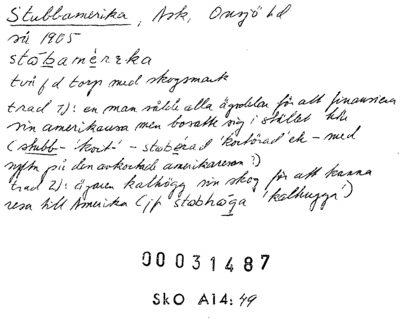 Stubbamerika, Ask, Onsjö hd
sic 1905
stɑ̊bamérika
två f d torp med skogsmark
trad 1): en man sålde alla ägodelar för att finansiera
sin amerikaresa men bosatte sig i stället här
(stubb- 'kort' - stubérad 'kortörad' etc - med
syftn på den avkortade amerikaresan?)
trad 2): ägaren kalhögg sin skog för att kunna
resa till Amerika (jf stɑ̊bhöga 'kalhugga')
00031487
SkO A14:49